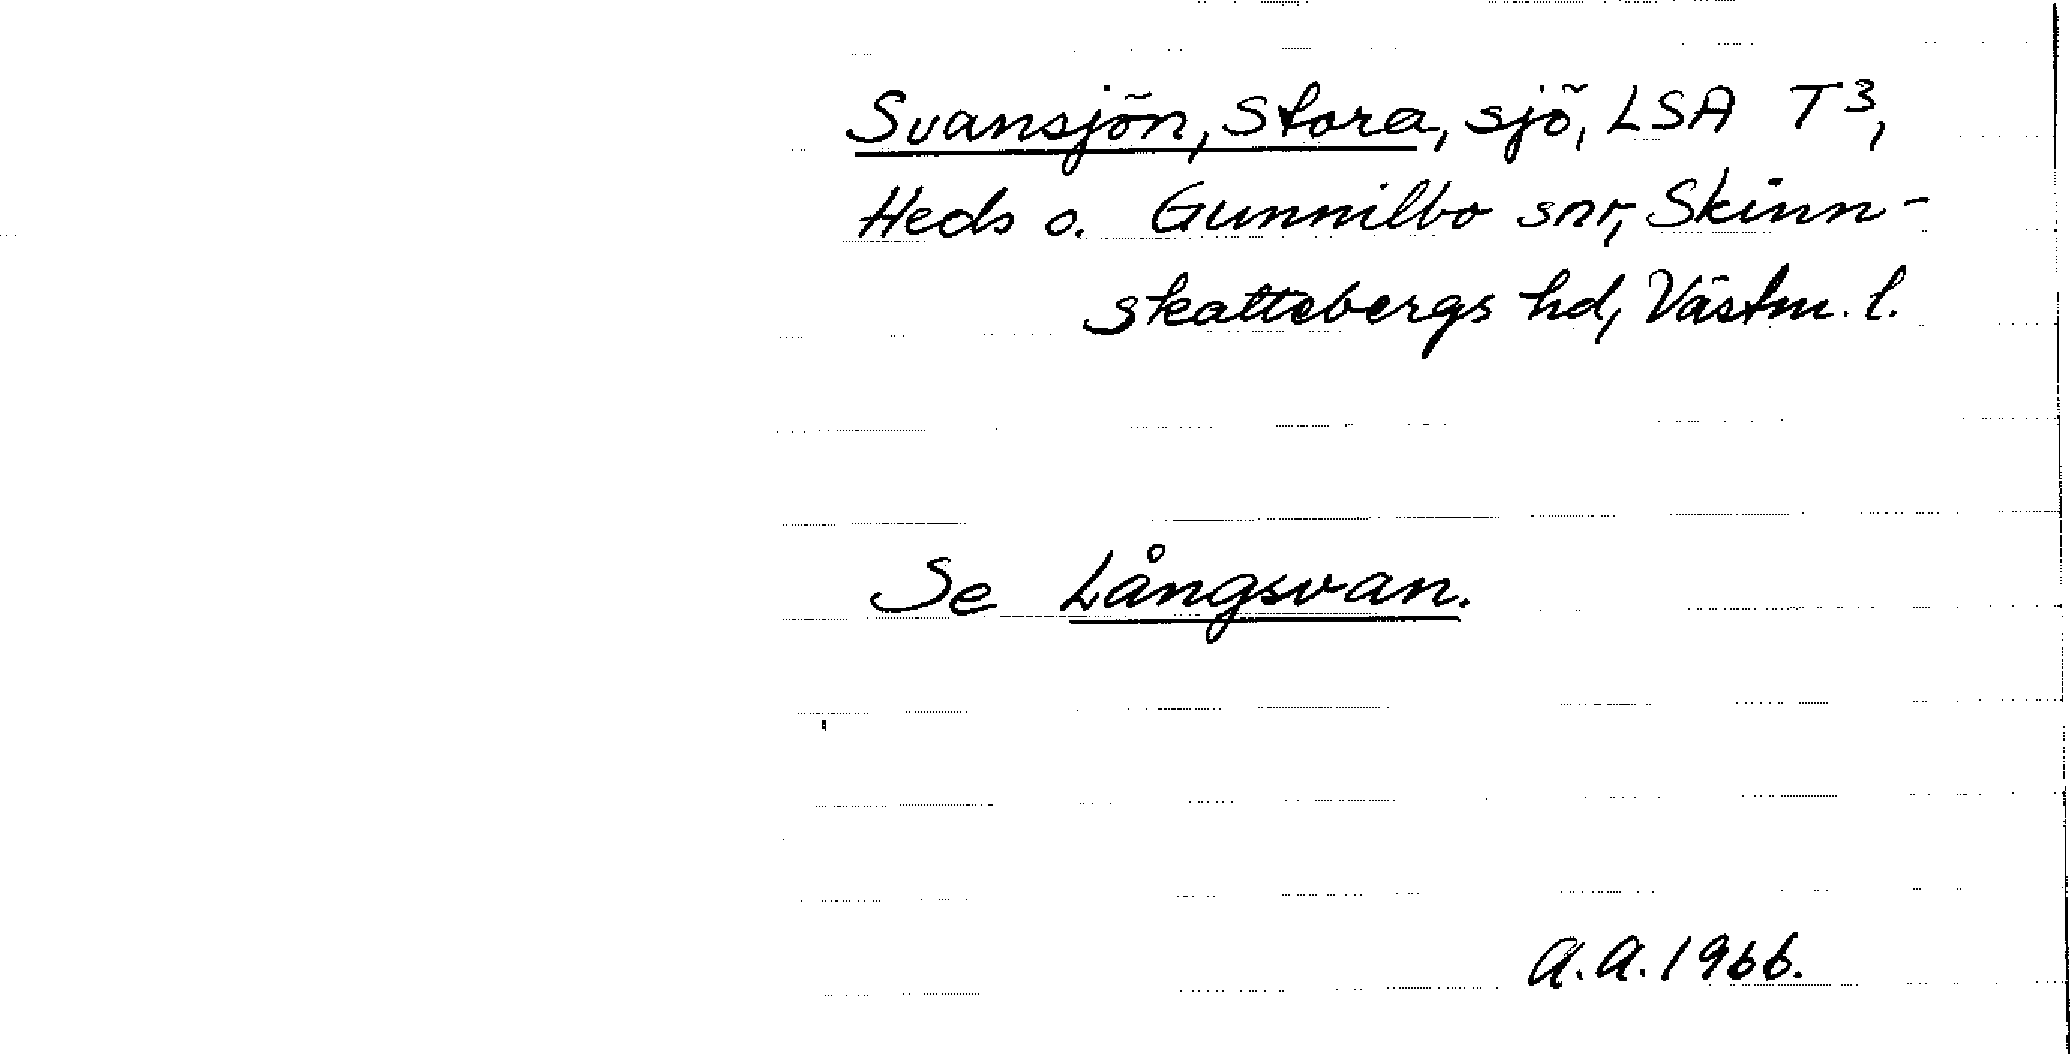 Svansjön, Stora, sjö, LSA T3,
Heds o. Gunnilbo snr, Skinn-
skattebergs hd, Västm. l.
Se Långsvan.
A.A. 1966.